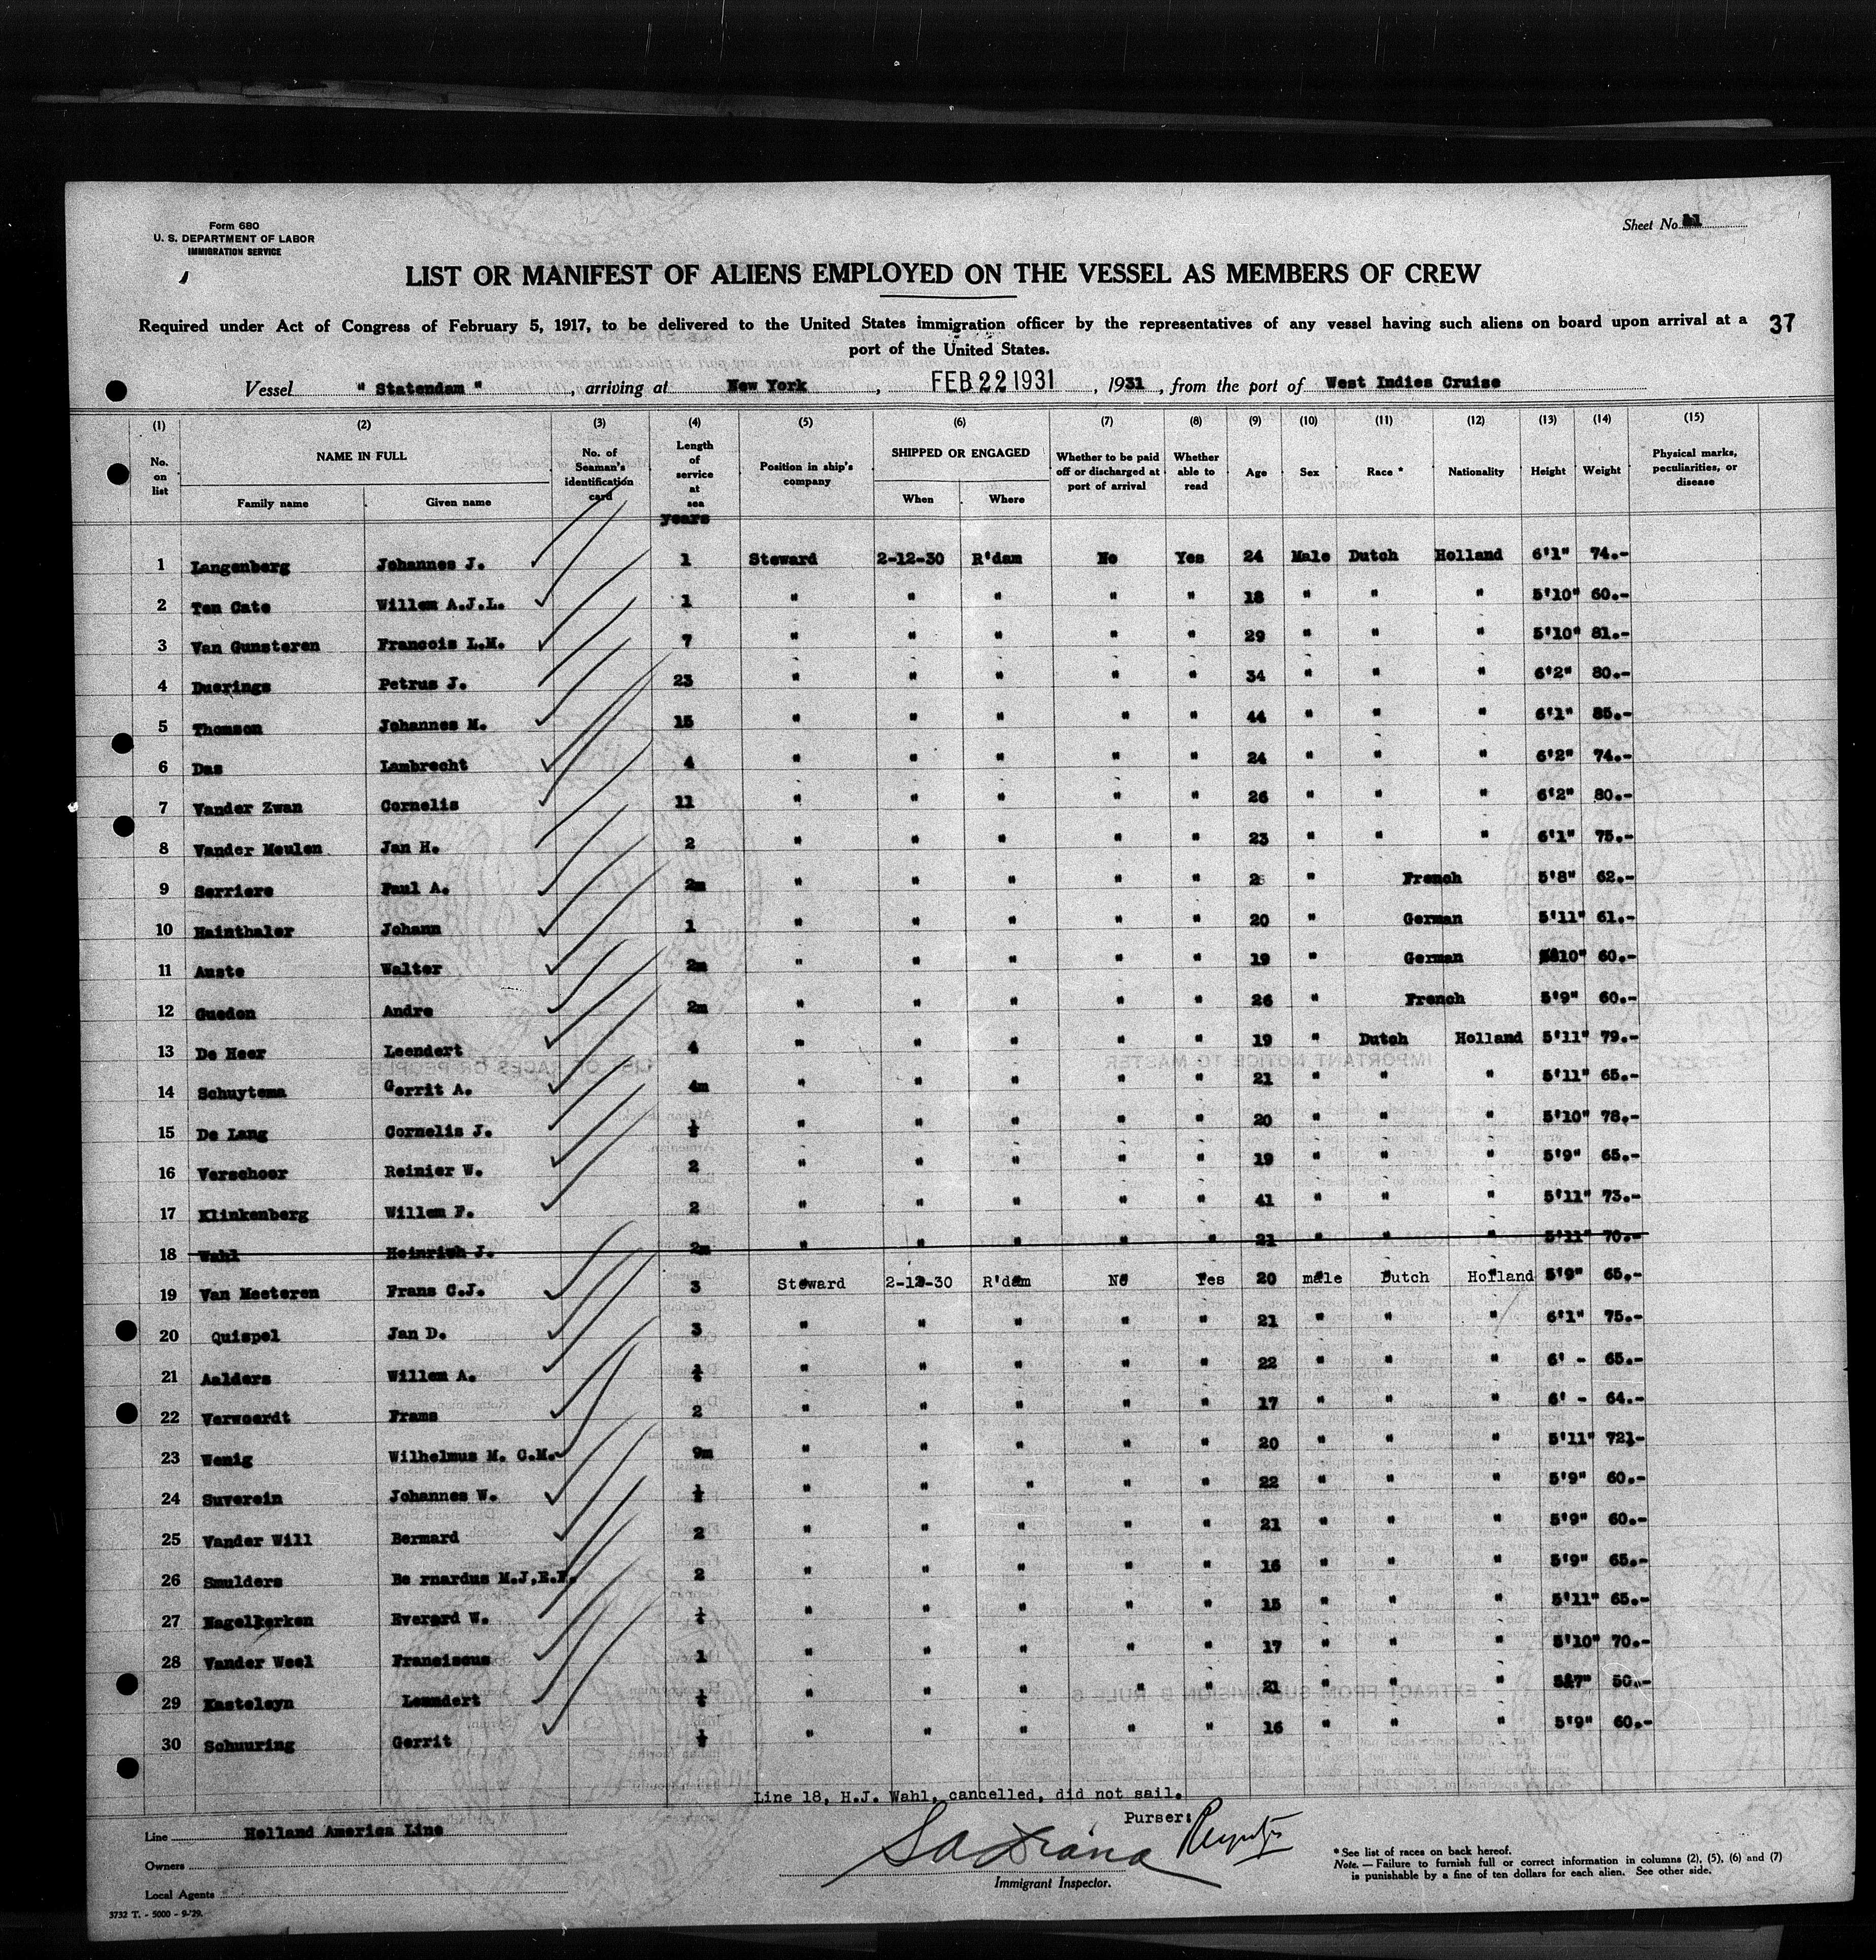 Form 680
U. S. DEPARTMENT OF LABOR
IMMIGRATION SERVICE
Sheet No.
LIST OR MANIFEST OF ALIENS EMPLOYED ON THE VESSEL AS MEMBERS OF CREW
Required under Act of Congress of February 5, 1917, to be delivered to the United States immigration officer by the representatives of any vessel having such aliens on board upon arrival at a
port of the United States.
37
Vessel " Statendam " , arriving at New York , FEB 22 1931 , 1931 , from the port of West Indies Cruise
(1) (2) (3) (4) (5) (6) (7) (8) (9) (10) (11) (12) (13) (14) (15)
No. on list NAME IN FULL Family name Given name No. of Seaman's identification card Length of service at sea years Position in ship's company SHIPPED OR ENGAGED When Where Whether to be paid off or discharged at port of arrival Whether able to read Age Sex Race * Nationality Height Weight Physical marks, peculiarities, or disease
1 Langenberg Johannes J. 1 Steward 2-12-30 R'dam No Yes 24 Male Dutch Holland 6'1" 74.-
2 Ten Cate Willem A.J.L. 1 " " " " " 18 " " " 5'10" 60.-
3 Van Gunsteren Francois L.M. 7 " " " " " 29 " " " 5'10" 81.-
4 Duerings Petrus J. 23 " " " " " 34 " " " 6'2" 80.-
5 Thomson Johannes M. 15 " " " " " 44 " " " 6'1" 85.-
6 Das Lambrecht 4 " " " " " 24 " " " 6'2" 74.-
7 Vander Zwan Cornelis 11 " " " " " 26 " " " 6'2" 80.-
8 Vander Meulen Jan H. 2 " " " " " 23 " " " 6'1" 75.-
9 Serriere Paul A. 2m " " " " " " French 5'8" 62.-
10 Hainthaler Johann 1 " " " " " 20 " German 5'11" 61.-
11 Auste Walter 2m " " " " " 19 " German 60.-
12 Guedon Andre 2m " " " " " 26 " French 5'9" 60.-
13 De Heer Leendert 4 " " " " " 19 " Dutch Holland 5'11" 79.-
14 Schuytema Gerrit A. 4m " " " " " 21 " " " 5'11" 65.-
15 De Lang Cornelis J. ½ " " " " " 20 " " " 5'10" 78.-
16 Verschoor Reinier W. 2 " " " " " 19 " " " 5'9" 65.-
17 Klinkenberg Willem F. 2 " " " " " 41 " " " 5'11" 73.-
18 Wahl Heinrich J. 2m " " " " " 21 " " " 5'11" 70.-
19 Van Meeteren Frans C.J. 3 Steward 2-12-30 R'dam No Yes 20 male Dutch Holland 5'9" 65.-
20 Quispel Jan D. 3 " " " " " 21 " " " 6'1" 75.-
21 Aalders Willem A. " " " " " 22 " " " 6' - 65.-
22 Verwoerdt Frans 2 " " " " " 17 " " " 6' - 64.-
23 Wenig Wilhelmus M. C.M. 9m " " " " " 20 " " " 5'11" 72½-
24 Suverein Johannes W. ½ " " " " " 22 " " " 5'9" 60.-
25 Vander Will Bernard 2 " " " " " 21 " " " 5'9" 60.-
26 Smulders Be rnardus 2 " " " " " 16 " " " 5'9" 65.-
27 Nagelkerken Everard W. " " " " " 15 " " " 5'11" 65.-
28 Vander Weel Franciscus 1 " " " " " 17 " " " 5'10" 70.-
29 Kasteleyn Leendert " " " " " 21 " " " 50.-
30 Schuuring Gerrit ½ " " " " " 16 " " " 5'9" 60.-
Line 18, H.J. Wahl, cancelled, did not sail.
Purser:
Line Holland America Line
Owners
Local Agents
Immigrant Inspector.
* See list of races on back hereof.
Note. — Failure to furnish full or correct information in columns (2), (5), (6) and (7)
is punishable by a fine of ten dollars for each alien. See other side.
3732 T. - 5000 - 9-'29.